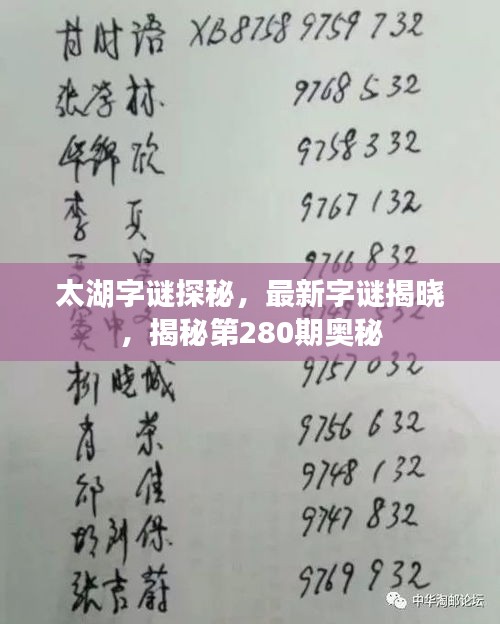 甘时语 XB8758 9759 732
张学林 9768 532
华锦欣 9758 332
李夏 9767 132
9766 832
太湖字谜探秘，最新字谜揭晓
，揭秘第280期奥秘
柳晓城 9757 032
肖荣 9756 632
邱佳 9748 132
胡利保 9747 832
张吉蔚 9769 932
中华淘邮论坛